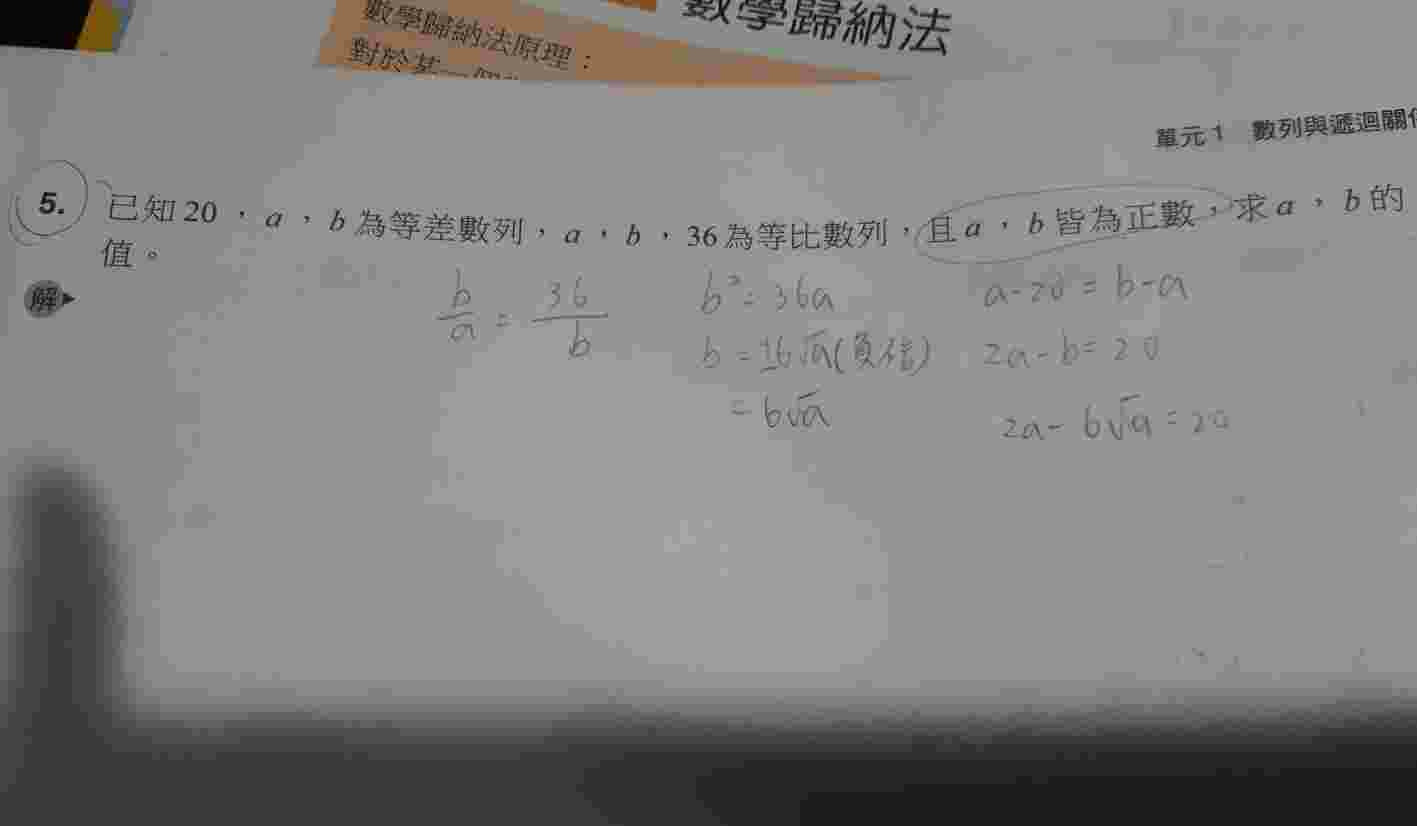 數學歸納法
數學歸納法原理：
對於某一個
單元1 數列與遞迴關
5. 已知20，a，b為等差數列，a，b，36為等比數列，且a，b皆為正數，求a，b的
值。
解
b/a = 36/b
b²=36a
b=±6√a(負不合)
=6√a
a-20=b-a
2a-b=20
2a-6√a=20